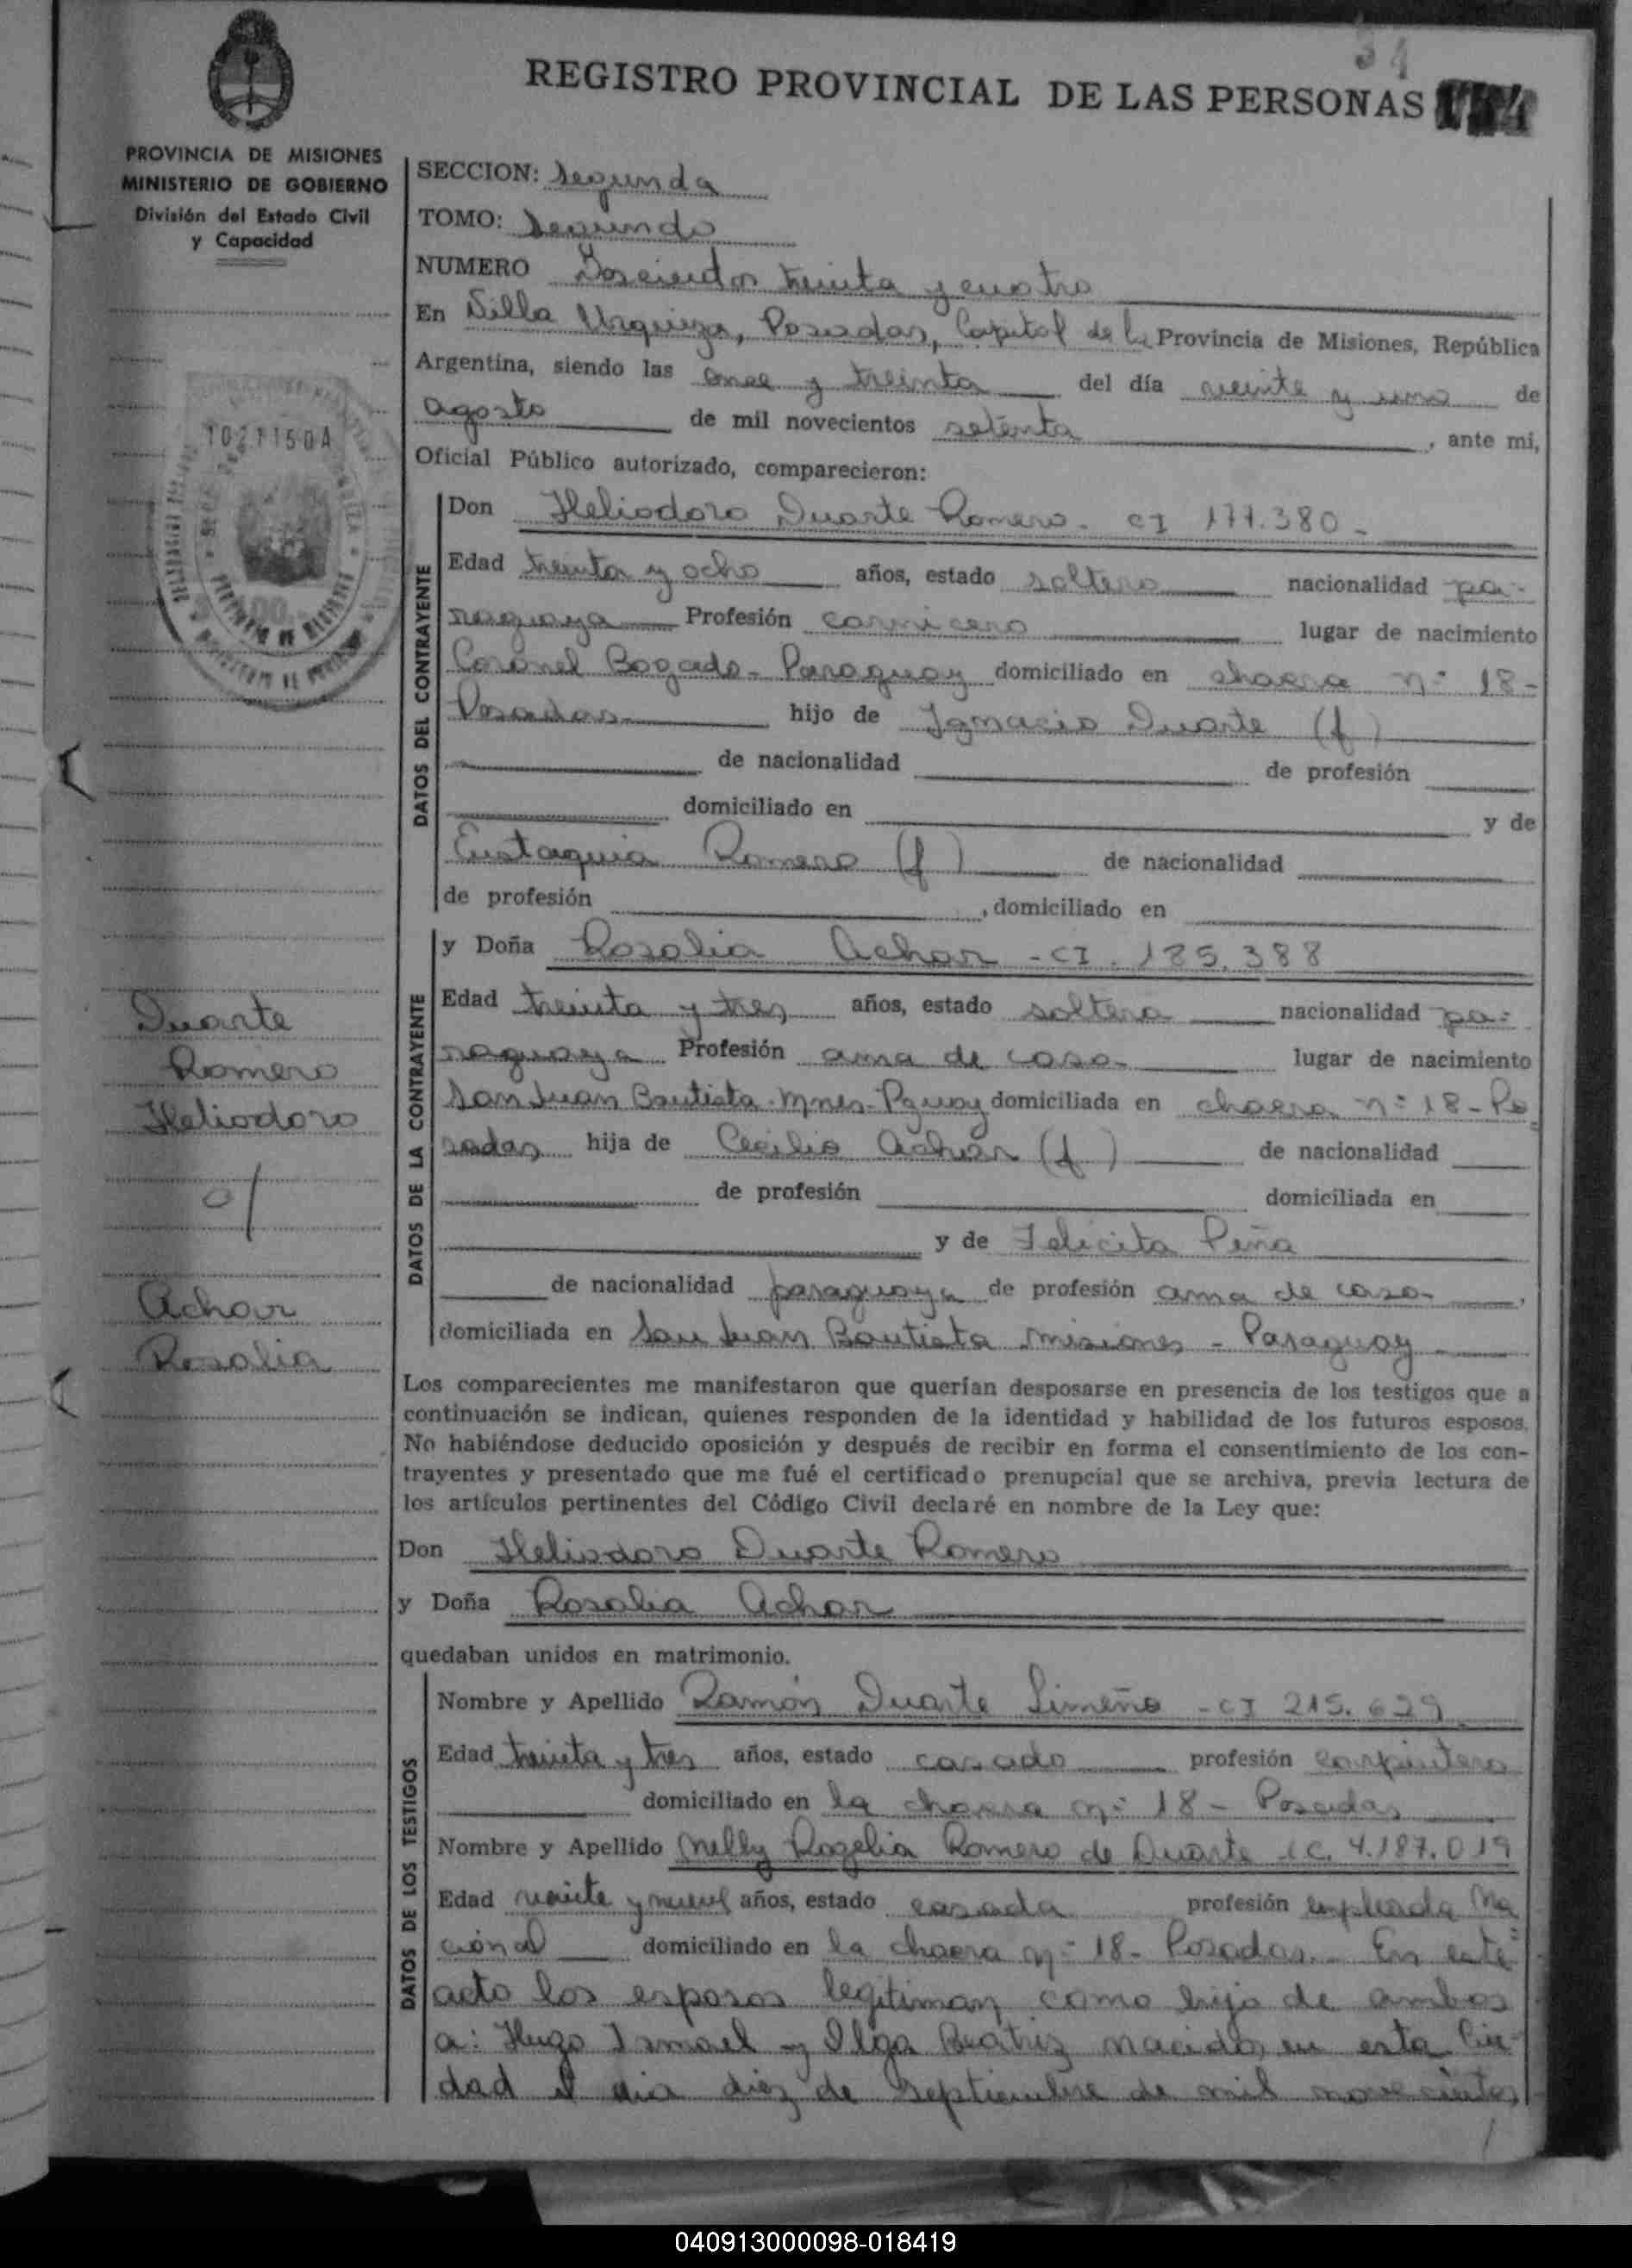 34
REGISTRO PROVINCIAL DE LAS PERSONAS
PROVINCIA DE MISIONES
MINISTERIO DE GOBIERNO
División del Estado Civil
y Capacidad
1021150A
SECCION: Segunda
TOMO: Segundo
NUMERO Doscientos treinta y cuatro
En Villa Urquiza, Posadas, Capital de la Provincia de Misiones, República
Argentina, siendo las once y treinta del día veinte y uno de
agosto de mil novecientos setenta, ante mi,
Oficial Público autorizado, comparecieron:
DATOS DEL CONTRAYENTE
Don Heliodoro Duarte Romero - CI 177.380 -
Edad treinta y ocho años, estado soltero nacionalidad pa-
raguaya Profesión carnicero lugar de nacimiento
Coronel Bogado - Paraguay domiciliado en chacra nº 18 -
Posadas hijo de Ignacio Duarte (f)
de nacionalidad de profesión
domiciliado en y de
Eustaquia Romero (f) de nacionalidad
de profesión , domiciliado en
DATOS DE LA CONTRAYENTE
y Doña Rosalia Achar - CI. 185.388
Edad treinta y tres años, estado soltera nacionalidad pa-
raguaya Profesión ama de casa lugar de nacimiento
San Juan Bautista - Mnes - Pguay domiciliada en chacra nº 18 - Po
sadas hija de Cecilio Achar (f) de nacionalidad
de profesión domiciliada en
y de Felicita Peña
de nacionalidad paraguaya de profesión ama de casa,
domiciliada en San Juan Bautista Misiones - Paraguay
Duarte
Romero
Heliodoro
c/
Achar
Rosalia
Los comparecientes me manifestaron que querían desposarse en presencia de los testigos que a
continuación se indican, quienes responden de la identidad y habilidad de los futuros esposos.
No habiéndose deducido oposición y después de recibir en forma el consentimiento de los con-
trayentes y presentado que me fué el certificado prenupcial que se archiva, previa lectura de
los artículos pertinentes del Código Civil declaré en nombre de la Ley que:
Don Heliodoro Duarte Romero
y Doña Rosalia Achar
quedaban unidos en matrimonio.
DATOS DE LOS TESTIGOS
Nombre y Apellido Ramón Duarte Limeño - CI 215.629
Edad treinta y tres años, estado casado profesión carpintero
domiciliado en la chacra nº 18 - Posadas
Nombre y Apellido Nelly Rogelia Romero de Duarte LC. 4.187.019
Edad veinte y nueve años, estado casada profesión empleada Na
cional domiciliado en la chacra nº 18 - Posadas. - En este
acto los esposos legitiman como hijo de ambos
a: Hugo Ismael y Olga Beatriz nacidos en esta Ciu-
dad el dia diez de Septiembre de mil novecientos
040913000098-018419